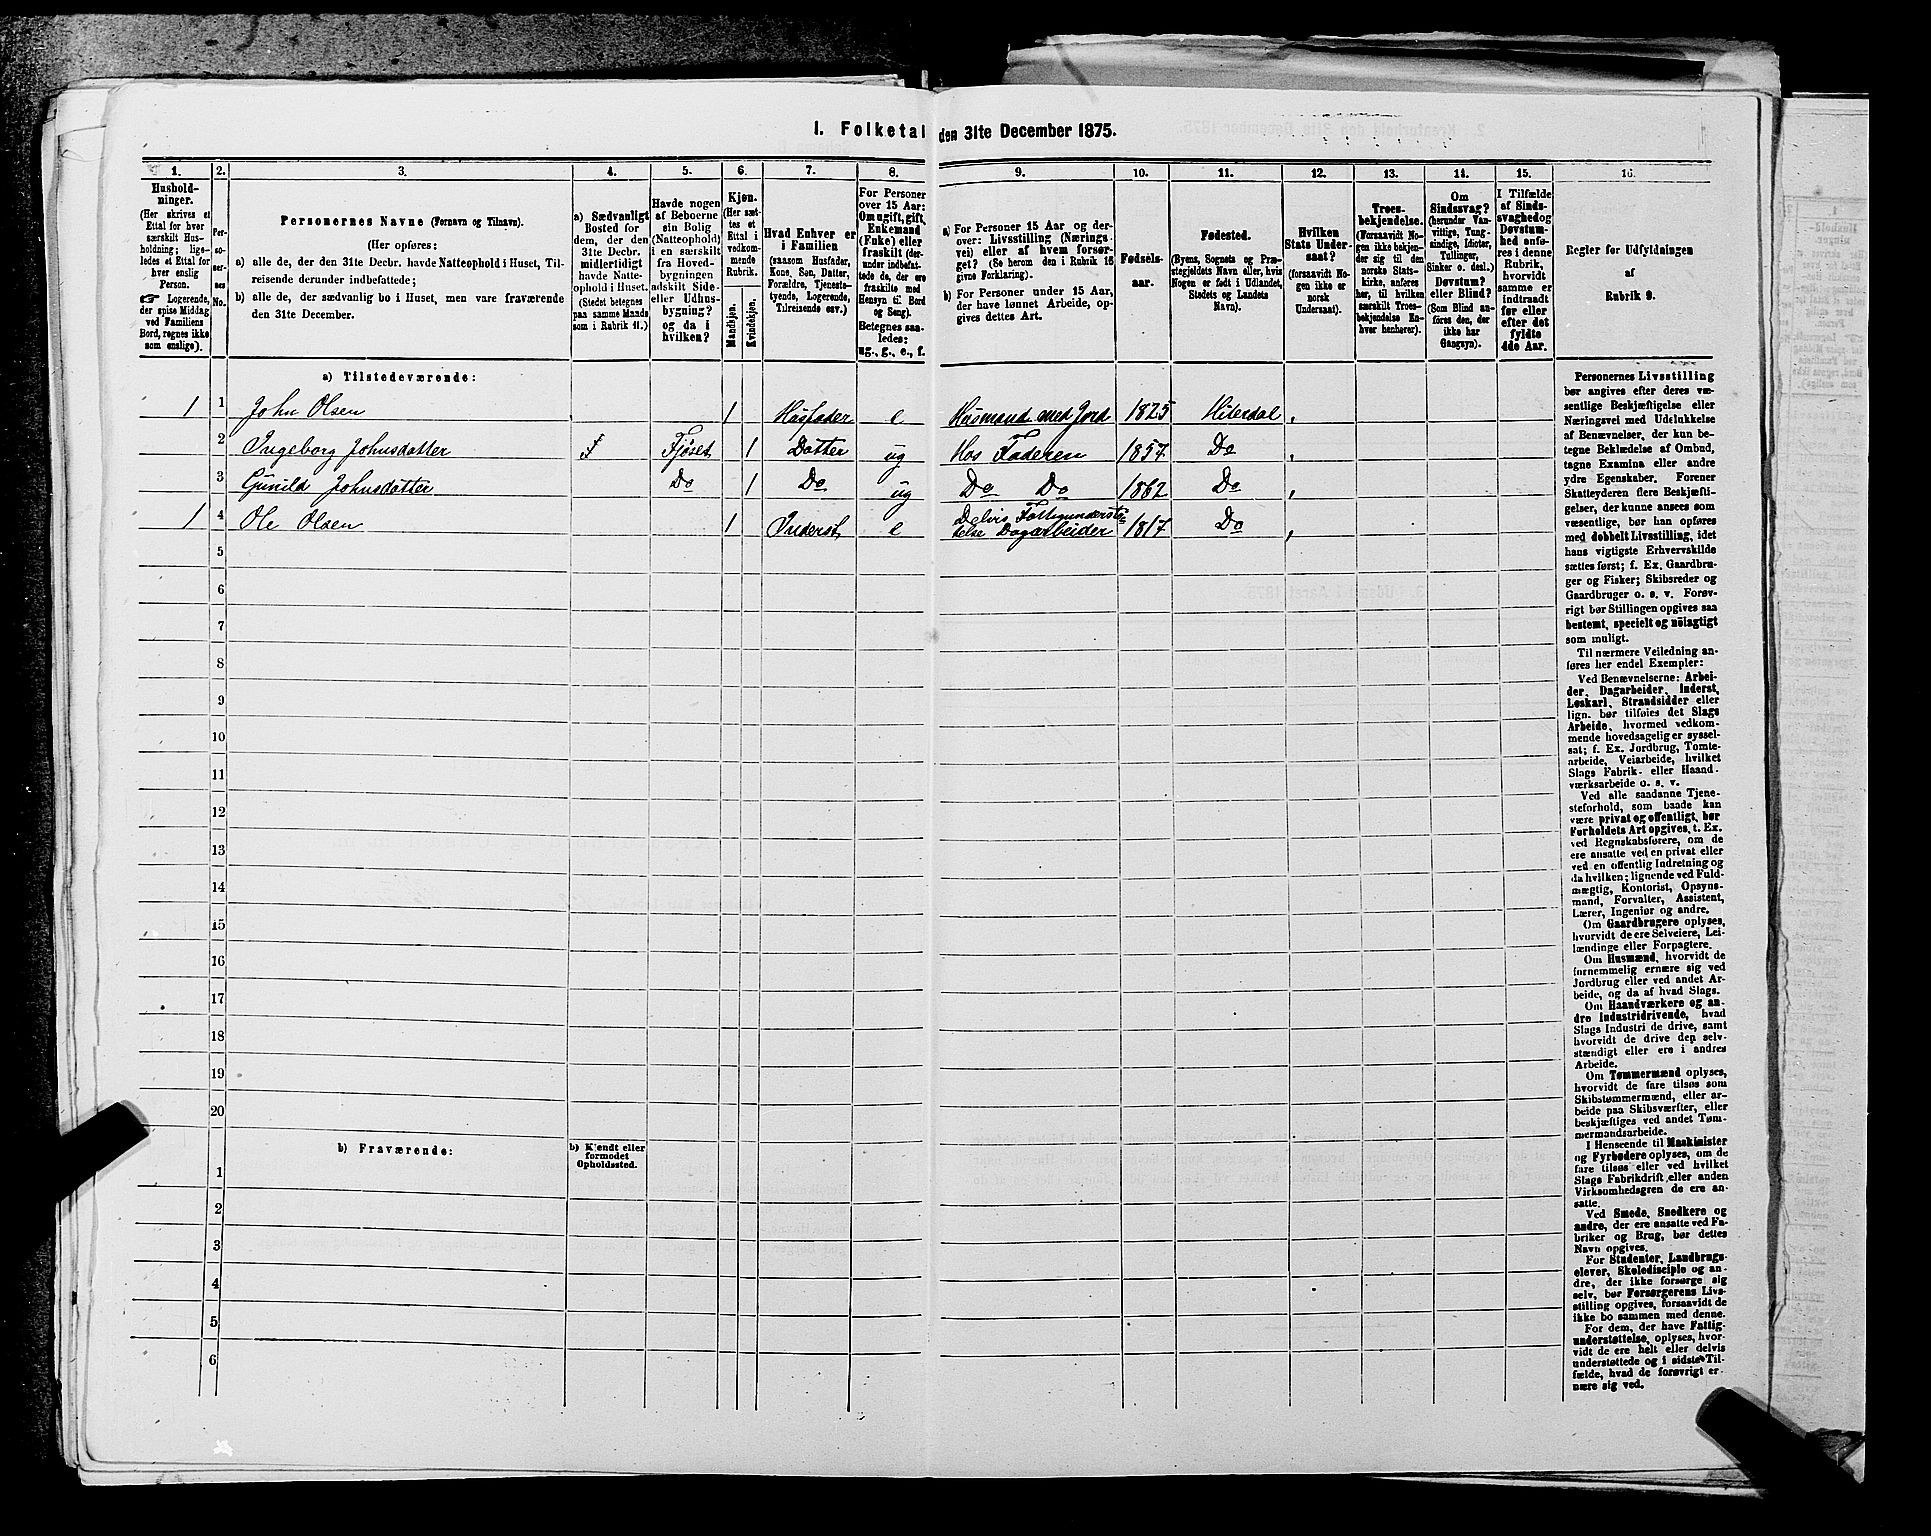 I. Folketal den 31te December 1875.
1.
Hushold-
ninger.
(Her skrives et
Ettal for hver
særskilt Hus-
holdning; lige-
ledes et Ettal for
hver enslig
Person.
Logerende,
der spise Middag
ved Familiens
Bord, regnes ikke
som enslige).
2.
Per-
so-
ner-
nes
No.
3.
Personernes Navne (Fornavn og Tilnavn).
(Her opføres:
a) alle de, der den 31te Decbr. havde Natteophold i Huset, Til-
reisende derunder indbefattede;
b) alle de, der sædvanlig bo i Huset, men vare fraværende
den 31te December.
4.
a) Sædvanligt
Bosted for
dem, der den
31te Decbr.
midlertidigt
havde Natte-
ophold i Huset.
(Stedet betegnes
paa samme Maade
som i Rubrik 11.)
5.
Havde nogen
af Beboerne
sin Bolig
(Natteophold)
i en særskilt
fra Hoved-
bygningen
adskilt Side-
eller Udhus-
bygning?
og da i
hvilken?
6.
Kjøn.
(Her sæt-
tes et
Ettal i
vedkom-
mende
Rubrik.
Mandkjøn.
Kvindekjøn.
7.
Hvad Enhver er
i Familien
(saasom Husfader,
Kone, Søn, Datter,
Forældre, Tjeneste-
tyende, Logerende,
Tilreisende osv.)
8.
For Personer
over 15 Aar:
Om ugift, gift,
Enkemand
(Enke) eller
fraskilt (der-
under indbefat-
tede de, der ere
fraskilte med
Hensyn til Bord
og Seng).
Betegnes saa-
ledes:
ug., g., e., f.
9.
a) For Personer 15 Aar og der-
over: Livsstilling (Nærings-
vei) eller af hvem forsør-
get? (Se herom den i Rubrik 16
givne Forklaring).
b) For Personer under 15 Aar,
der have lønnet Arbeide, op-
gives dettes Art.
10.
Fødsels-
aar.
11.
Fødested.
(Byens, Sognets og Præ-
stegjeldets Navn eller, hvis
Nogen er født i Udlandet,
Stedets og Landets
Navn).
12.
Hvilken
Stats Under-
saat?
(forsaavidt No-
gen ikke er
norsk
Undersaat).
13.
Troes-
bekjendelse.
(Forsaavidt No-
gen ikke bekjen-
der sig til den
norske Stats-
kirke, anføres
her, til hvilken
særskilt Troes-
bekjendelse En-
hver henhører).
14.
Om
Sindssvag?
(herunder Van-
vittige, Tung-
sindige, Idioter,
Tullinger,
Sinker o. desl.)
Døvstum?
eller Blind?
(Som Blind an-
føres den, der
ikke har
Gangsyn).
15.
I Tilfælde
af Sinds-
svaghed og
Døvstum-
hed anfø-
res i denne
Rubrik,
hvorvidt
samme er
indtraadt
før eller
efter det
fyldte
4de Aar.
16.
Regler for Udfyldningen
af
Rubrik 9.
a) Tilstedeværende:
1 1 John Olsen 1 Husfader e Husmand med Jord 1825 Hiterdal
2 Ingeborg Johnsdatter Fjøset 1 Datter ug Hos Faderen 1857 Do
3 Gunild Johnsdatter Do 1 Do ug Do Do 1862 Do
1 4 Ole Olsen 1 Inderst e Delvis Fattigunderstø-
telse Dagarbeider 1817 Do
5
6
7
8
9
10
11
12
13
14
15
16
17
18
19
20
b) Fraværende:
b) Kjendt eller
formodet
Opholdssted.
1
2
3
4
5
6
Personernes Livsstilling
bør angives efter deres væ-
sentlige Beskjæftigelse eller
Næringsvei med Udelukkelse
af Benævnelser, der kun be-
tegne Beklædelse af Ombud,
tagne Examina eller andre
ydre Egenskaber. Forener
Skatteyderen flere Beskjæfti-
gelser, der kunne ansees som
væsentlige, bør han opføres
med dobbelt Livsstilling, idet
hans vigtigste Erhvervskilde
sættes først; f. Ex. Gaardbru-
ger og Fisker; Skibsreder og
Gaardbruger o. s. v. Forøv-
rigt bør Stillingen opgives saa
bestemt, specielt og nöiagtigt
som muligt.
Til nærmere Veiledning an-
føres her endel Exempler:
Ved Benævnelserne: Arbei-
der, Dagarbeider, Inderst,
Løskarl, Strandsidder eller
lign. bør tilføies det Slags
Arbeide, hvormed vedkom-
mende hovedsagelig er syssel-
sat; f. Ex. Jordbrug, Tomte-
arbeide, Veiarbeide, hvilket
Slags Fabrik- eller Haand-
værksarbeide o. s. v.
Ved alle saadanne Tjene-
steforhold, som baade kan
være privat og offentligt, bør
Forholdets Art opgives, t. Ex.
ved Regnskabsførere, om de
ere ansatte ved en privat eller
ved en offentlig Indretning og
da hvilken; lignende ved Fuld-
mægtig, Kontorist, Opsyns-
mand, Forvalter, Assistent,
Lærer, Ingeniør og andre.
Om Gaardbrugere oplyses,
hvorvidt de ere Selveiere, Lei-
lændinge eller Forpagtere.
Om Husmænd, hvorvidt de
fornemmelig ernære sig ved
Jordbrug eller ved andet Ar-
beide, og da af hvad Slags.
Om Haandværkere og an-
dre Industridrivende, hvad
Slags Industri de drive, samt
hvorvidt de drive den selv-
stændigt eller ere i andres
Arbeide.
Om Tømmermænd oplyses,
hvorvidt de fare tilsøs som
Skibstømmermænd, eller ar-
beide paa Skibsværfter, eller
beskjæftiges ved andet Tøm-
mermandsarbeide.
I Henseende til Maskinister
og Fyrbødere oplyses, om de
fare tilsøs eller ved hvilket
Slags Fabrikdrift eller anden
Virksomhedsgren de ere an-
satte.
Ved Smede, Snedkere og
andre, der ere ansatte ved Fa-
briker og Brug, bør dettes
Navn opgives.
For Studenter, Landbrugs-
elever, Skoledisciple og an-
dre, der ikke forsørge sig
selv, bør Forsørgerens Livs-
stilling opgives, forsaavidt de
ikke bo sammen med denne.
For dem, der have Fattig-
understøttelse, oplyses, hvor-
vidt de ere helt eller delvis
understøttede og i sidste Til-
fælde, hvad de forøvrigt er-
nære sig ved.